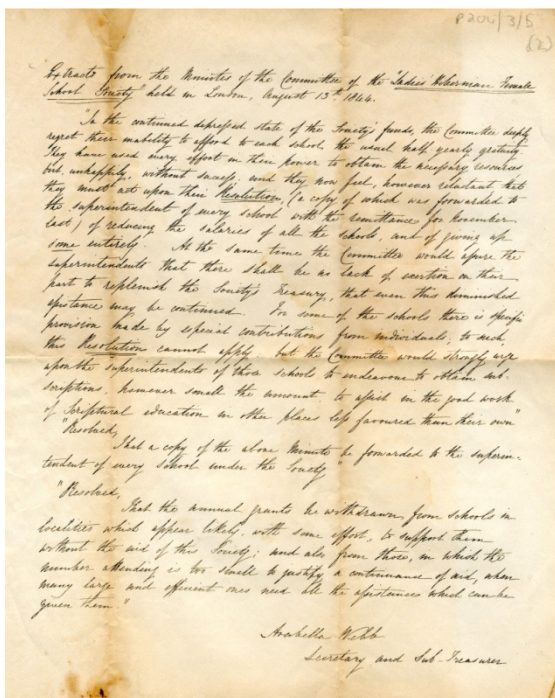 P206/3/5
(2)
Extracts from the Minutes of the Committee of the "Ladies' Hibernian Female
School Society" held in London, August 13th 1844.
"In the continued depressed state of the Society's funds, the Committee deeply
regret their inability to afford to each school the usual half yearly gratuity
They have used every effort in their power to obtain the necessary resources
but, unhappily, without success, and they now feel, however reluctant that
they must act upon their Resolution, (a copy of which was forwarded to
the superintendent of every school with the remittance for November
last) of reducing the salaries of all the schools, and of giving up
some entirely. At the same time the Committee would assure the
superintendents that there shall be no lack of exertion on their
part to replenish the Society's Treasury, that even this diminished
assistance may be continued. For some of the schools there is specific
provision made by especial contributions from individuals, to such,
this Resolution cannot apply, but the Committee would strongly urge
upon the superintendents of those schools to endeavour to obtain sub-
scriptions, however small the amount, to assist in the good work
of Scriptural education in other places less favoured than their own"
"Resolved,
That a copy of the above Minute be forwarded to the superin-
tendent of every School under the Society"
"Resolved,
That the annual grants be withdrawn from schools in
localities which appear likely, with some effort, to support them
without the aid of this Society; and also from those, in which the
number attending is too small to justify a continuance of aid, when
many large and efficient ones need all the assistance which can be
given them."
Arabella Webb
Secretary and Sub-Treasurer